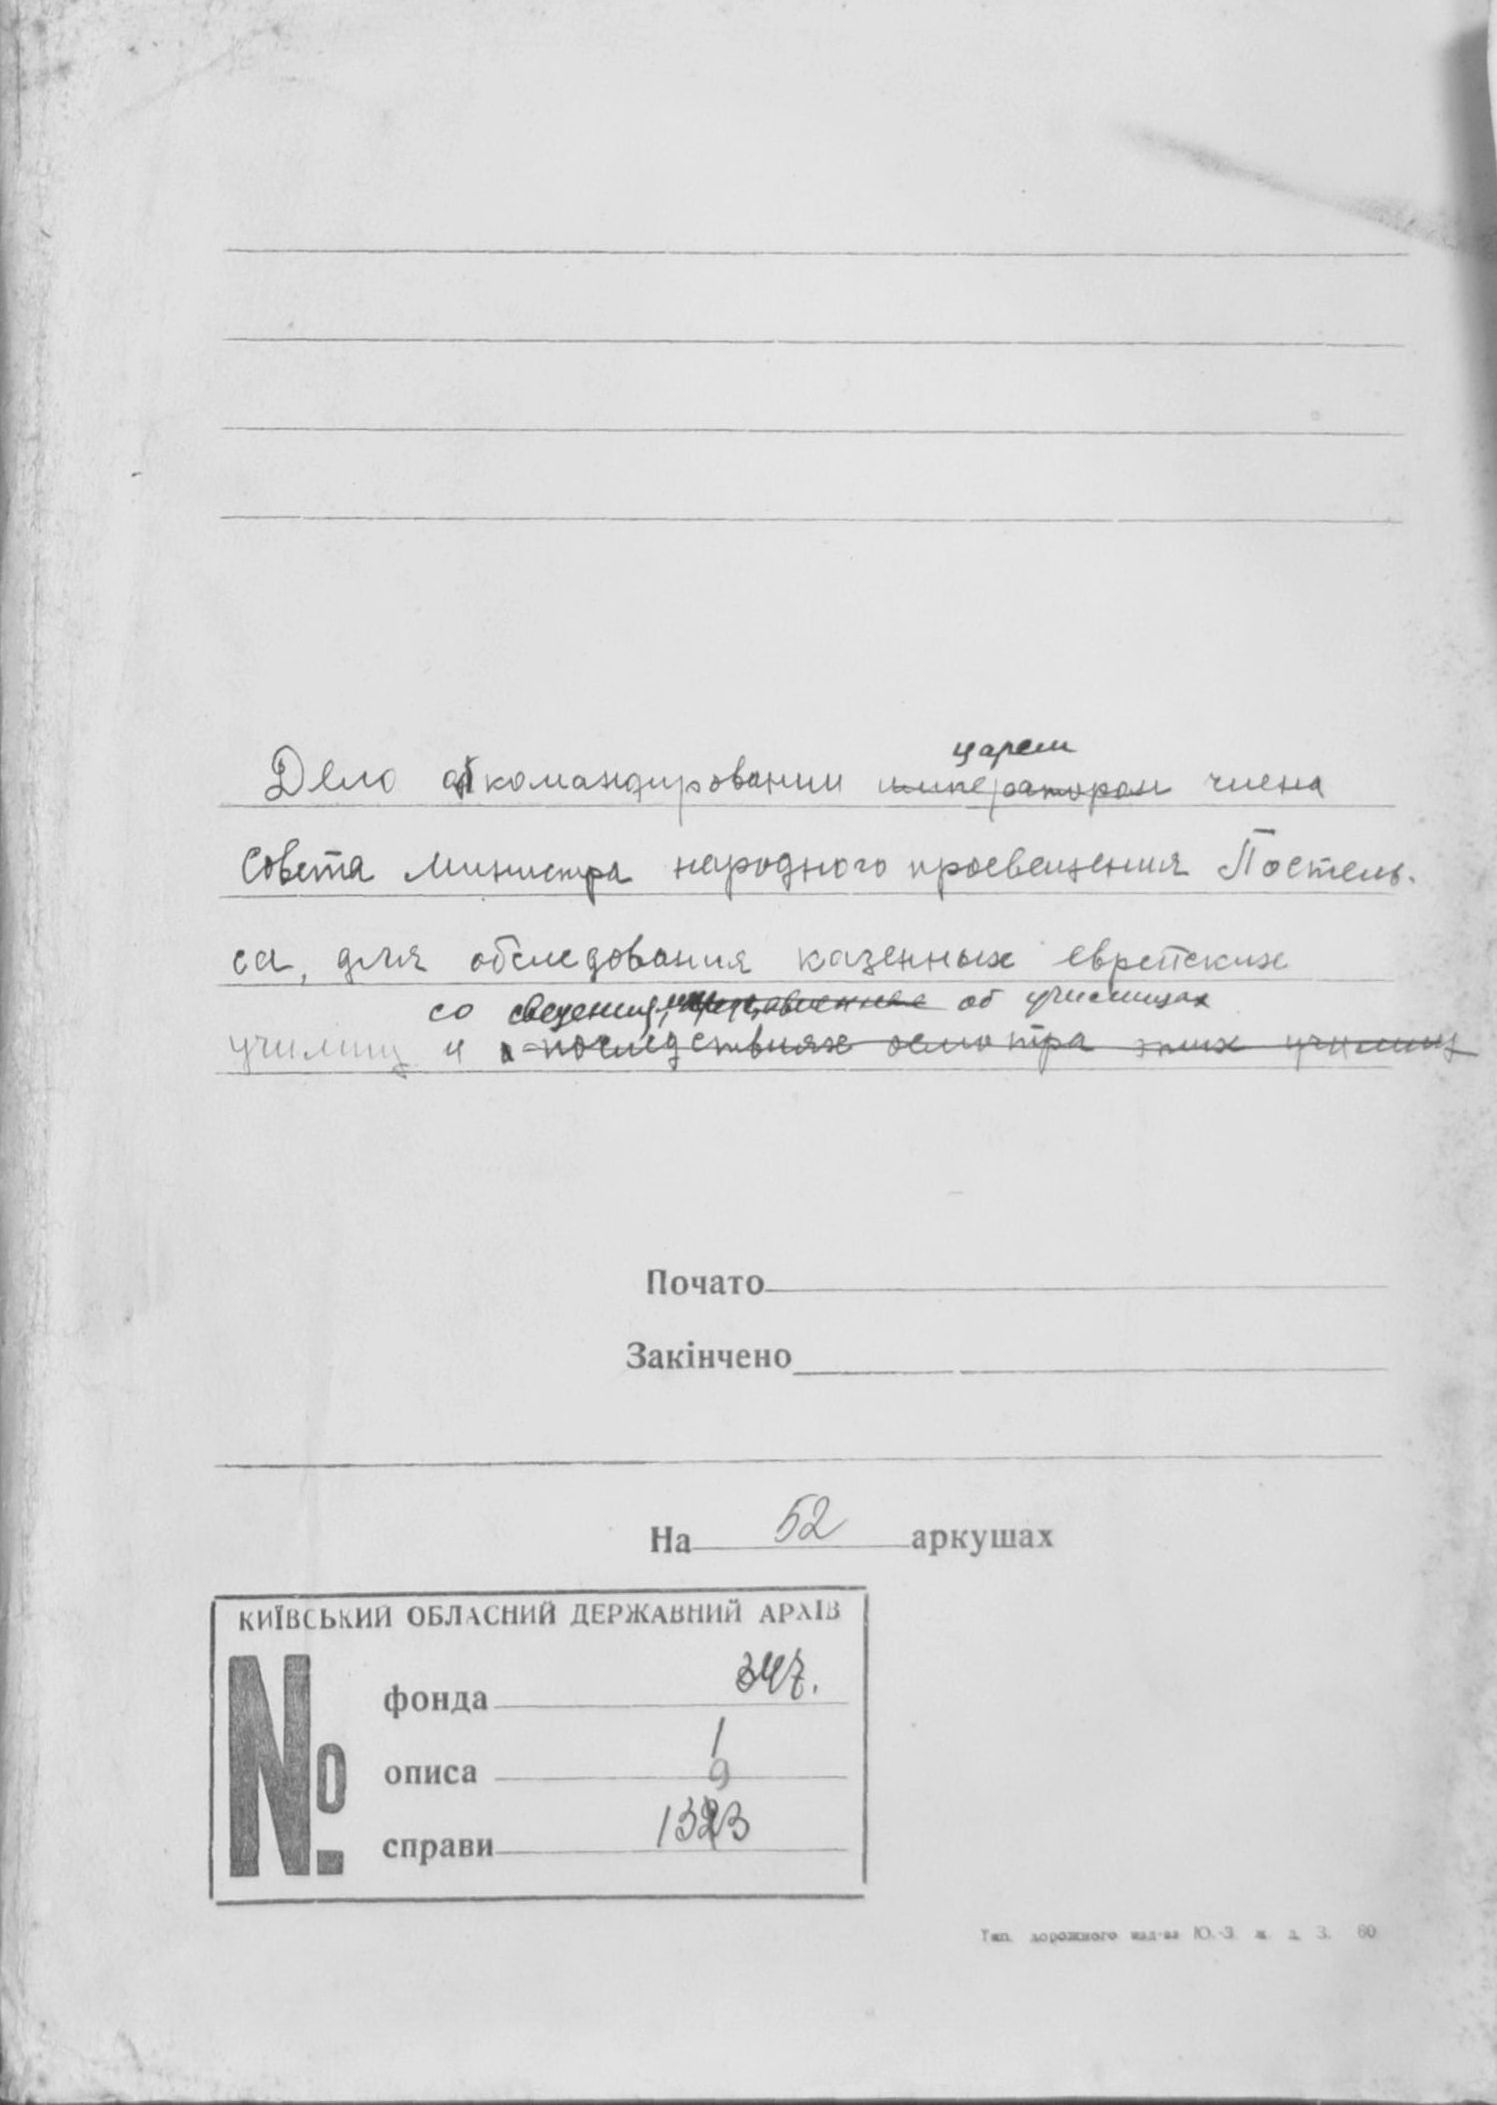 царем
Дело о командировании императором члена
Совета министра народного просвещения Постель-
са, для обследования казенных еврейских
со сведениями, об училищах
училищ и о последствиях осмотра этих училищ
Почато
Закінчено
На 52 аркушах
КИЇВСЬКИЙ ОБЛАСНИЙ ДЕРЖАВНИЙ АРХІВ
№
фонда 347.
1
описа 9
справи 1323
Тип. дорожного изд-ва Ю.-З. ж. д. З. 60